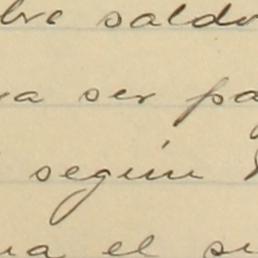 bre saldo
ra ser pa
según
ra el su